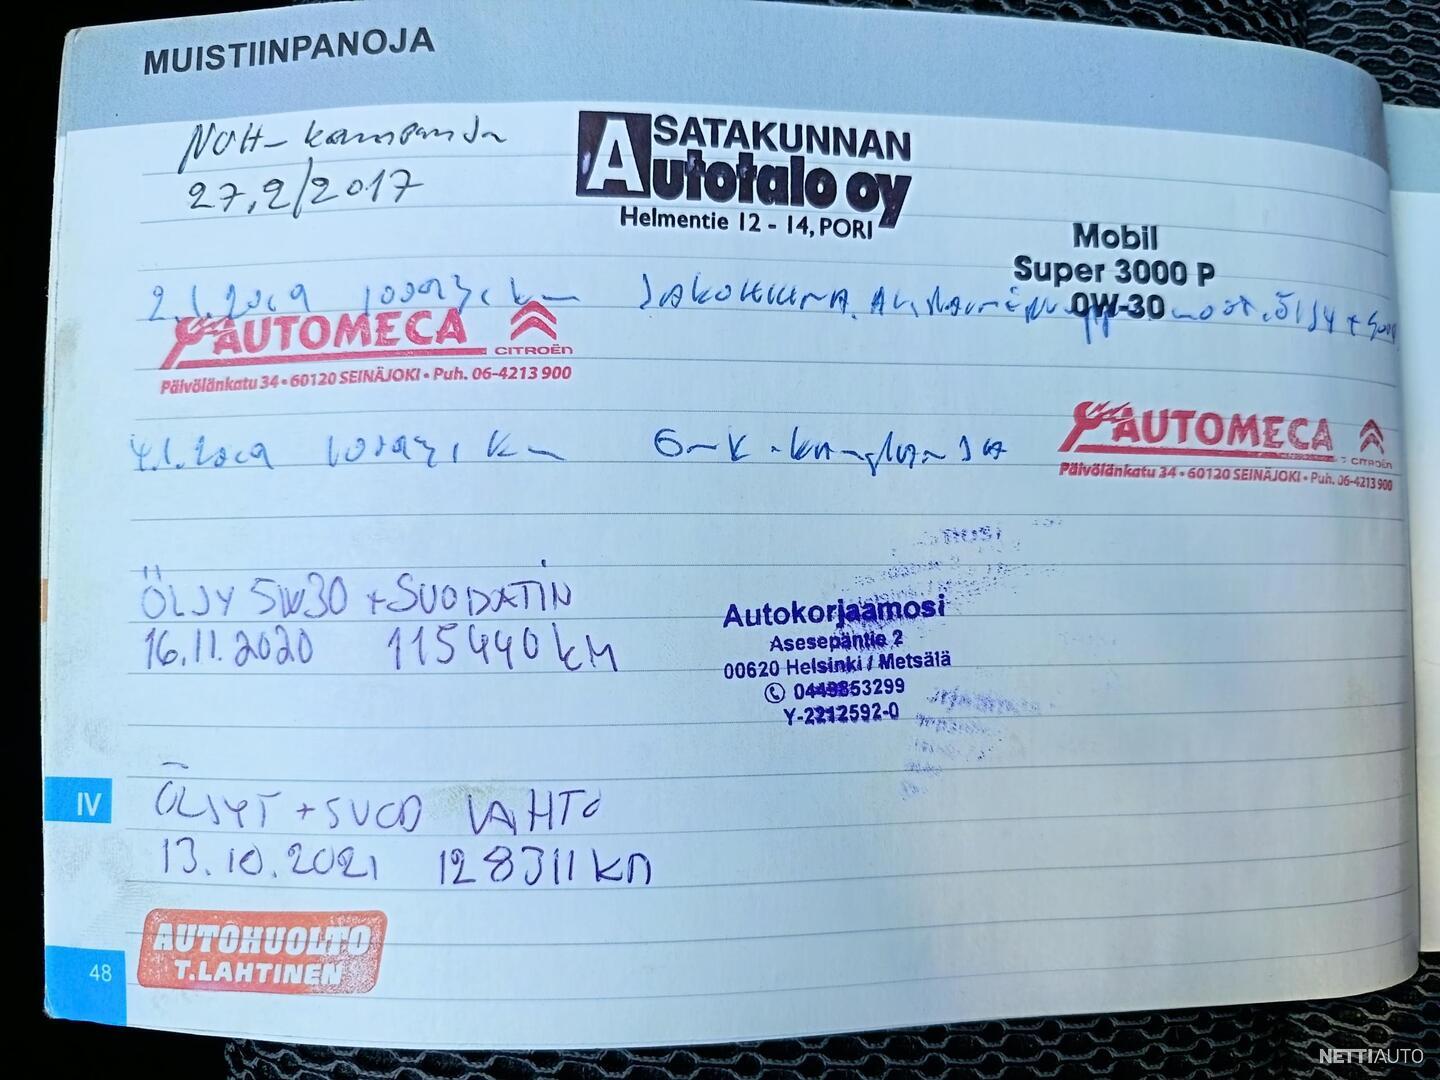 MUISTIINPANOJA
27.2/2017
A SATAKUNNAN
Autotalo oy
Helmentie 12 - 14, PORI
Mobil
Super 3000 P
0W-30
2.1.2019 km JAKOHIHNA
AUTOMECA
CITROËN
Päivölänkatu 34 • 60120 SEINÄJOKI • Puh. 06-4213 900
4.1.2019 km
AUTOMECA
CITROËN
Päivölänkatu 34 • 60120 SEINÄJOKI • Puh. 06-4213 900
ÖLJY 5W30 + SUODATIN
16.11.2020 115440 km
Autokorjaamosi
Asesepäntie 2
00620 Helsinki / Metsälä
0449853299
Y-2212592-0
IV
ÖLJYT + SUOD VAIHTO
13.10.2021 128311 km
AUTOHUOLTO
T.LAHTINEN
48
NETTIAUTO